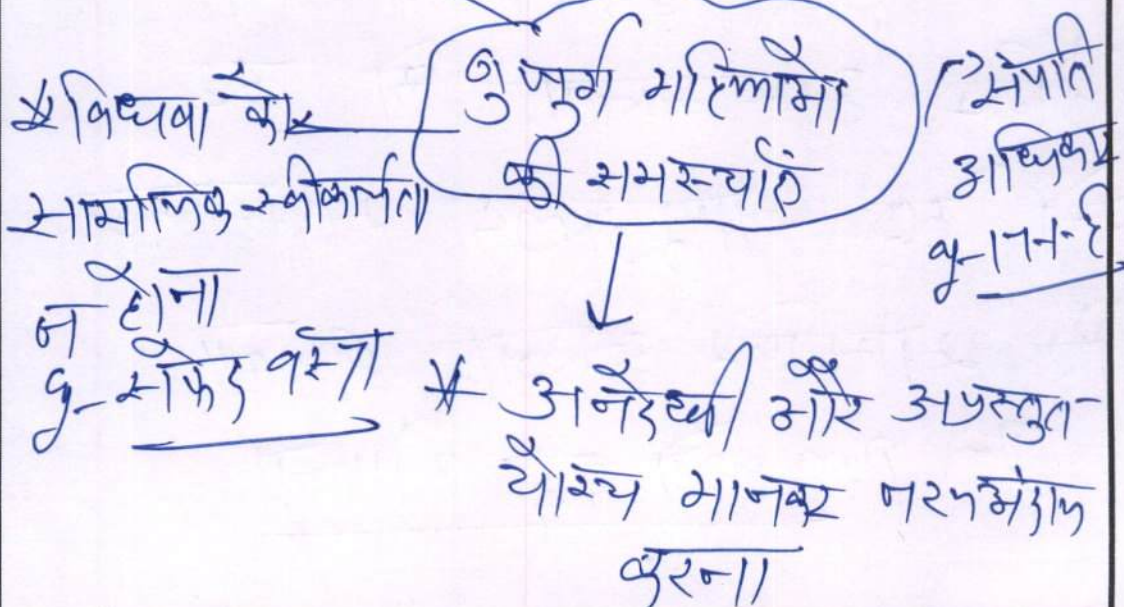 बुजुर्ग महिलाओं
की समस्याएं
* विधवा को
सामाजिक स्वीकार्यता
न होना
सफेद वस्त्र
संपति
अधिकार
* अनदेखी और
मानकर नजरअंदाज
करना